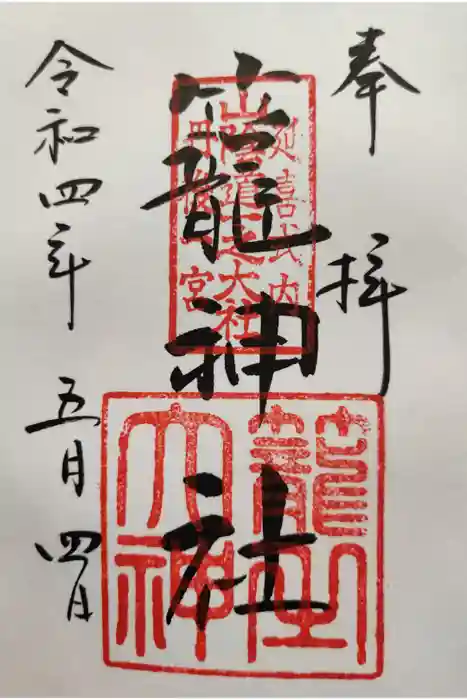 奉拝
延喜式内
山陰道之大社
丹後一宮
籠神社
籠之
大神
令和四年 五月四日